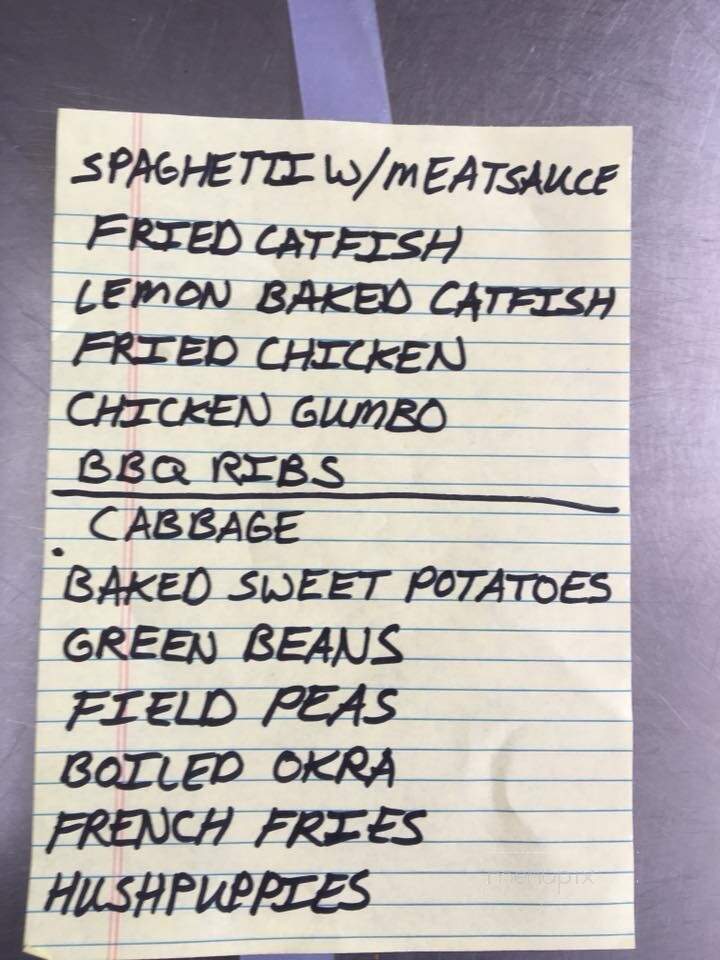 SPAGHETTI W/MEATSAUCE
FRIED CATFISH
LEMON BAKED CATFISH
FRIED CHICKEN
CHICKEN GUMBO
BBQ RIBS
CABBAGE
BAKED SWEET POTATOES
GREEN BEANS
FIELD PEAS
BOILED OKRA
FRENCH FRIES
HUSHPUPPIES